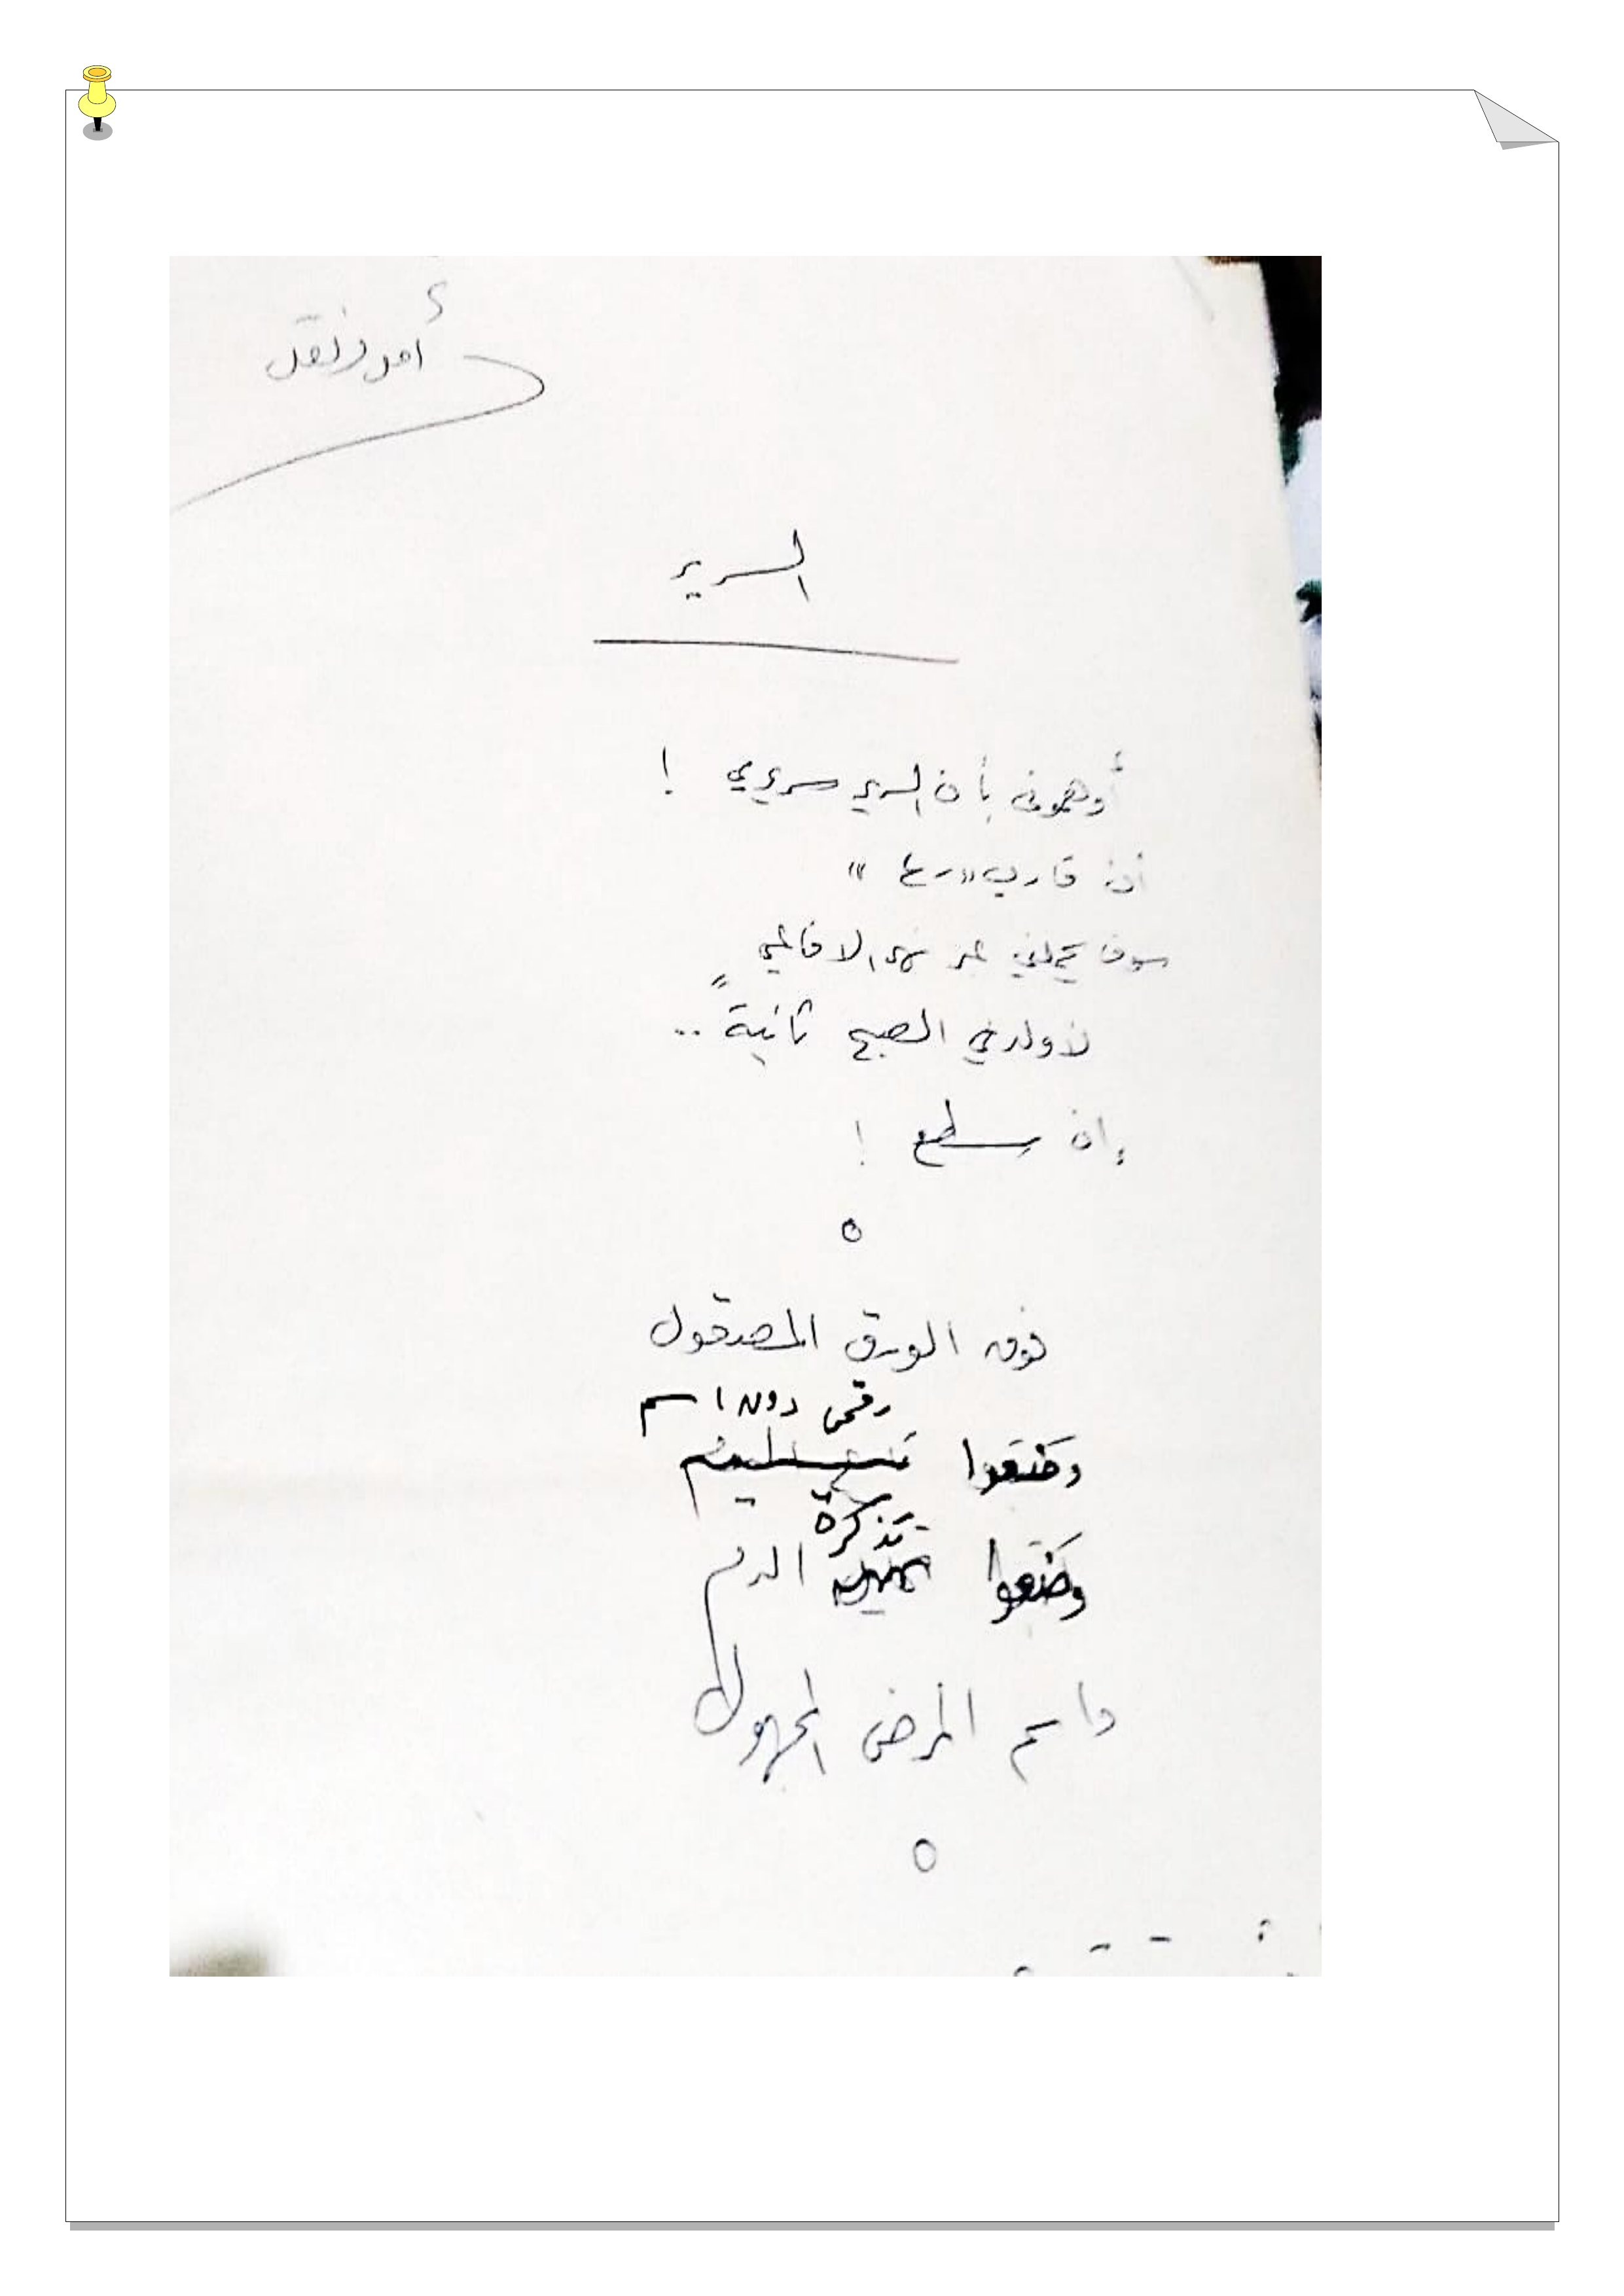 أمل دنقل
السرير
أوهموني بأن السرير سريري !
أن قارب «رع»
سوف يحملني عبر نهر الافاعي
لأولد في الصبح ثانيةً ..
إن سطع !
فوق الورق المصقول
رقمي دون اسم
وضَعوا
تذكرة
وضَعوا الدم
واسم المرض المجهول